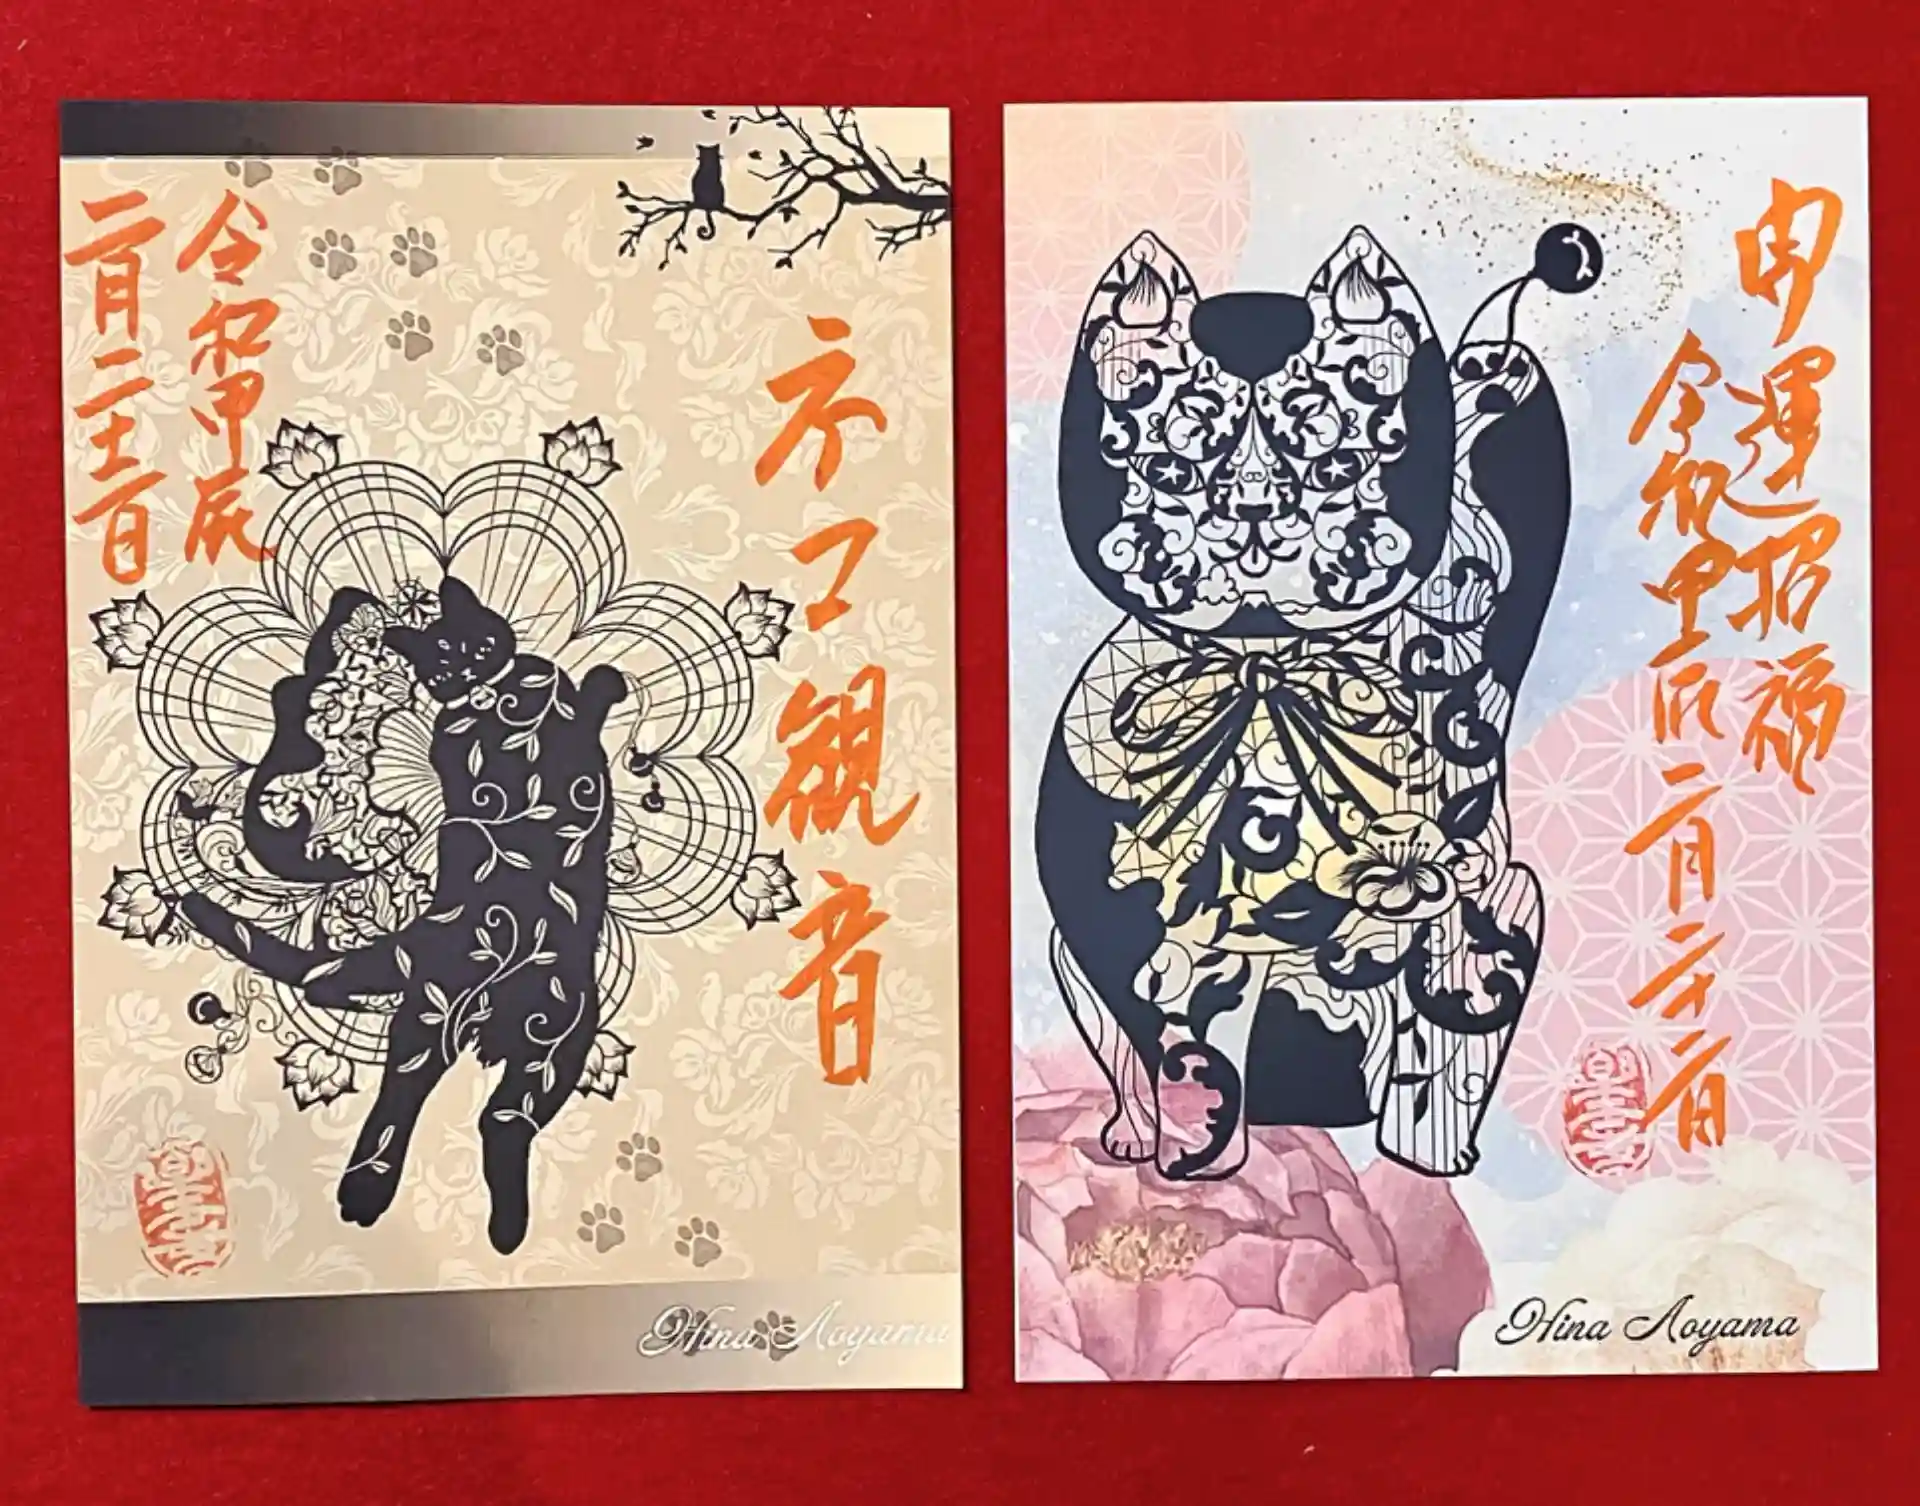 ネコ観音
令和甲辰
二月二十二日
Hina Aoyama
開運招福
令和甲辰二月二十二日
Hina Aoyama